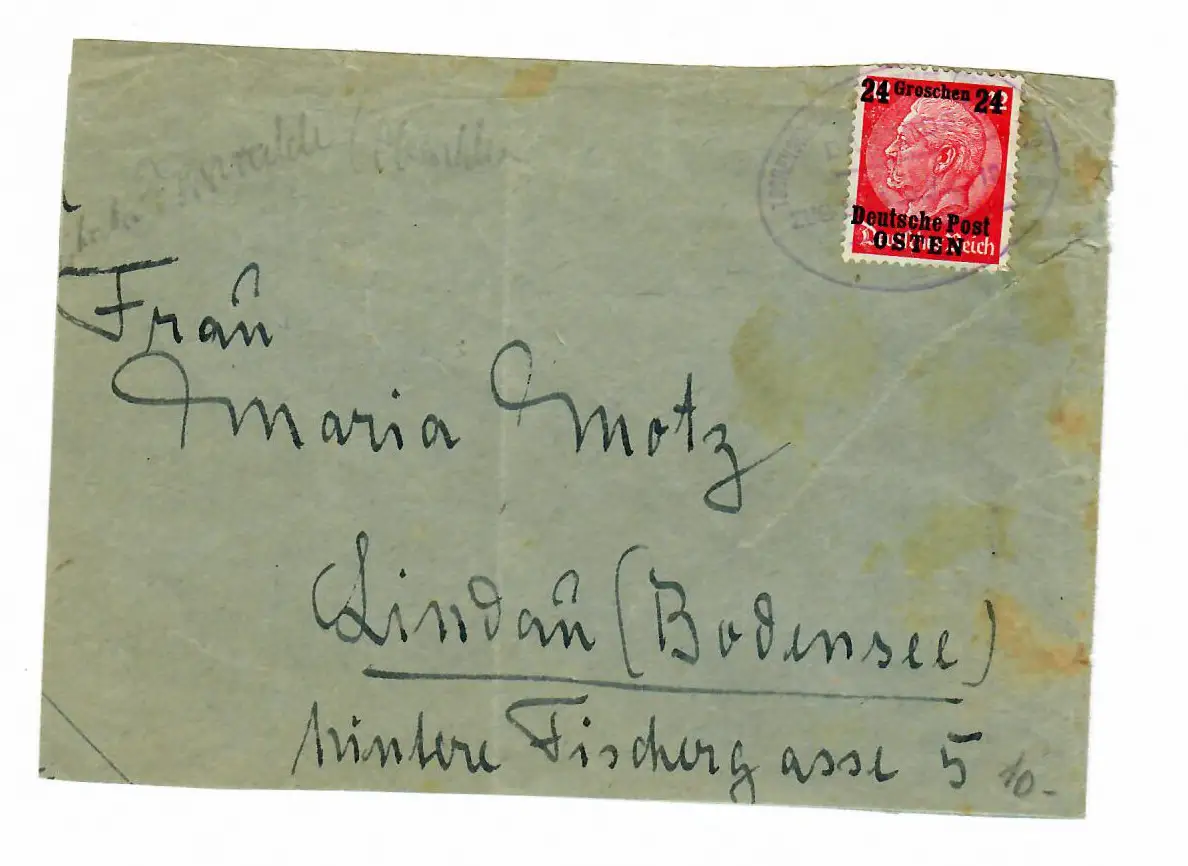 24 Groschen 24
Deutsche Post
OSTEN
Deutsches Reich
Frau
Maria Motz
Lindau (Bodensee)
hintere Fischergasse 5
10.-